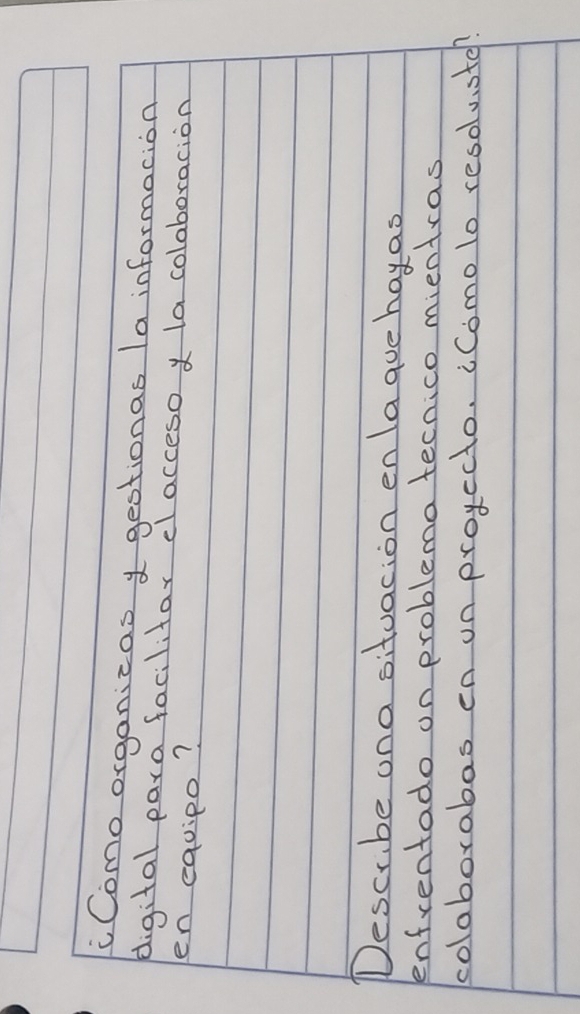 ¿Cómo organizas y gestionas la información
digital para facilitar el acceso y la colaboración
en equipo?
Describe una situación en la que hayas
enfrentado un problema tecnico mientras
colaborabas en un proyecto. ¿Cómo lo resolviste?